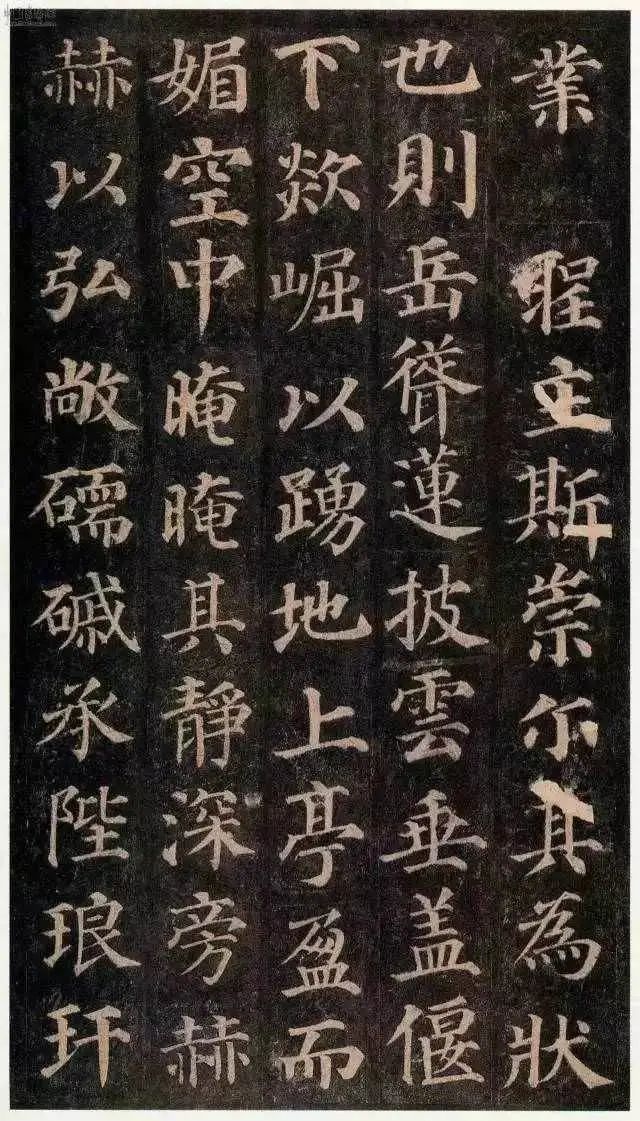 業　聖主斯崇尓其為狀
也則岳聳蓮披雲垂盖偃
下欻崛以踴地上亭盈而
媚空中晻晻其靜深旁赫
赫以弘敞礝磩承陛琅玕